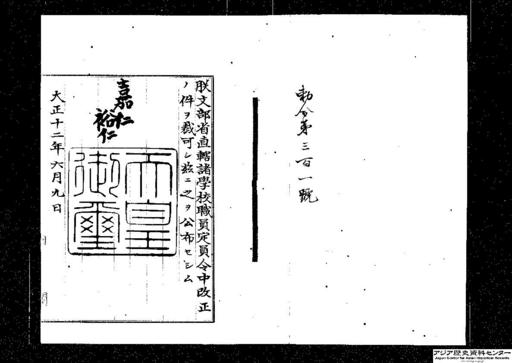 勅令第三百一號
朕文部省直轄諸學校職員定員令中改正
ノ件ヲ裁可シ茲ニ之ヲ公布セシム
嘉仁
裕仁
天皇
御璽
大正十二年六月九日
アジア歴史資料センター
Japan Center for Asian Historical Records